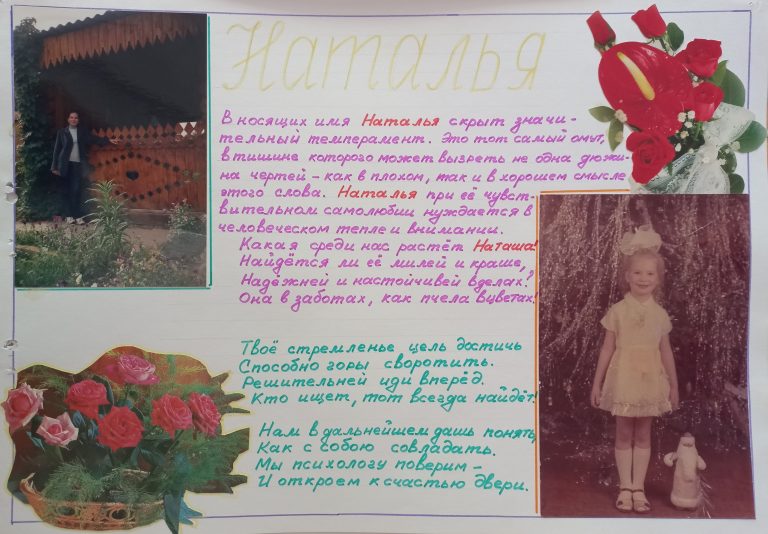 Наталья
В носящих имя Наталья скрыт значи-
тельный темперамент. Это тот самый омут,
в тишине которого может вызреть не одна дюжи-
на чертей – как в плохом, так и в хорошем смысле
этого слова. Наталья при её чувст-
вительном самолюбии нуждается в
человеческом тепле и внимании.
Какая среди нас растёт Наташа!
Найдётся ли её милей и краше,
Надёжней и настойчивей в делах?
Она в заботах, как пчела в цветах!
Твоё стремленье цель достичь
Способно горы своротить.
Решительней иди вперёд.
Кто ищет, тот всегда найдёт!
Нам в дальнейшем дашь понять,
Как с собою совладать.
Мы психологу поверим –
И откроем к счастью двери.